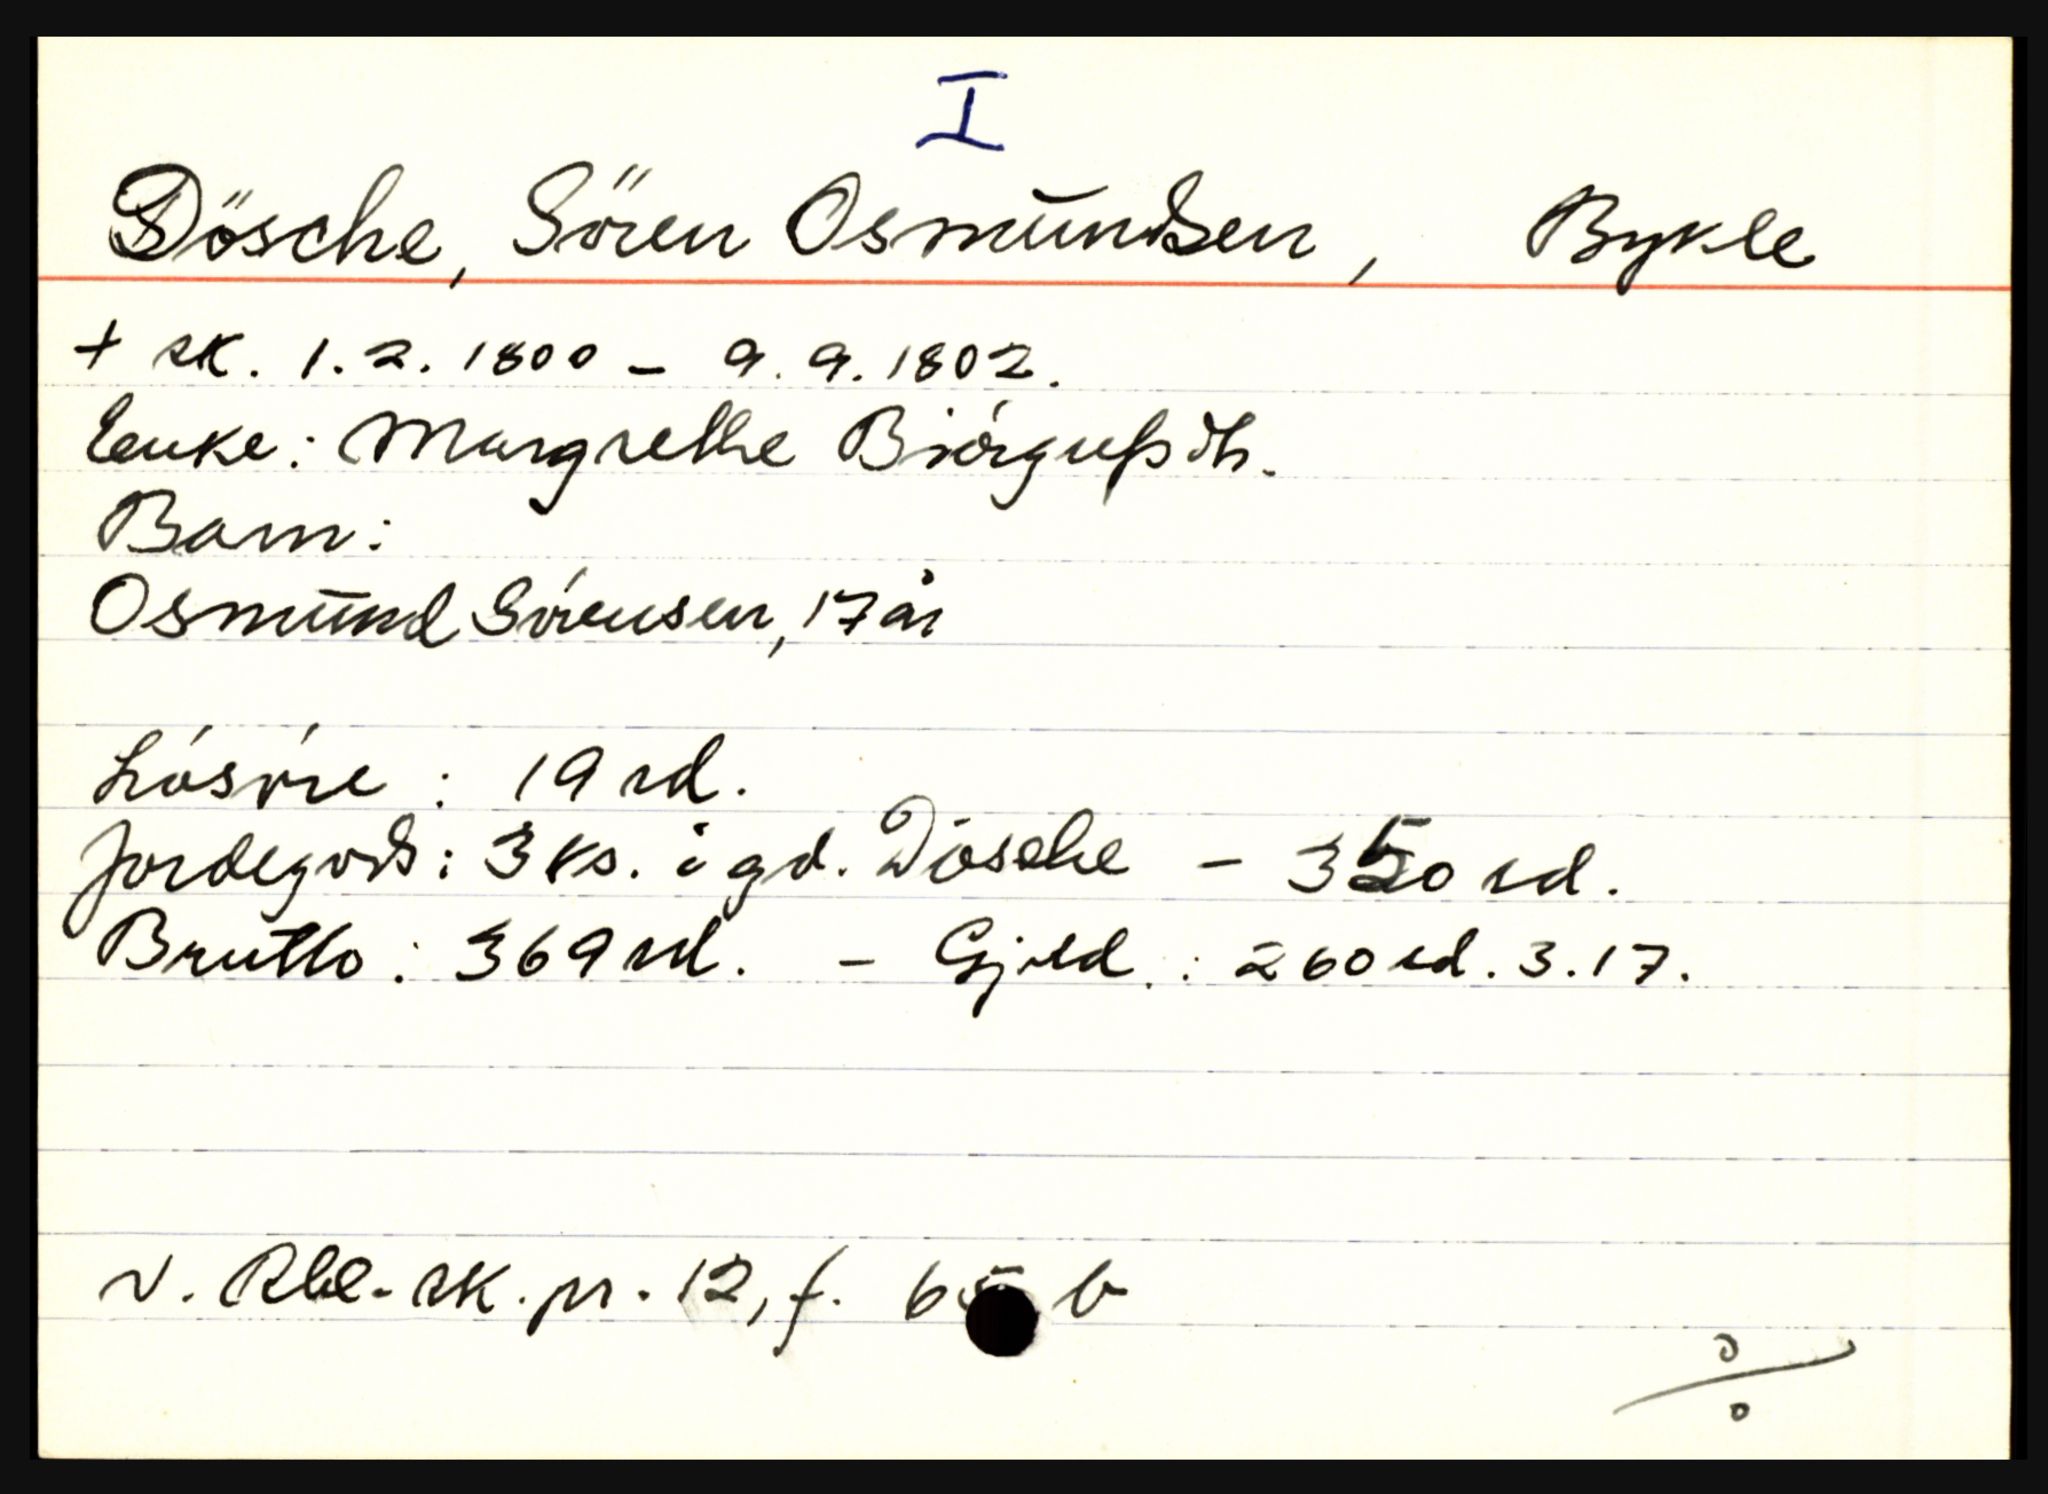 I
Dösche, Sören Osmundsen, Bykle
+ sk. 1.2.1800 - 9.9.1802.
Enke: Margrethe Biórgufsdtr.
Barn:
Osmund Sórensen, 17 år
Lösöre : 19 rd.
Jordegods: 3 ks. i gd. Dösche - 350 rd.
Brutto: 369 rd. - Gjeld.: 260 rd. 3.17.
N. Rbl. sk. pr. 12, f. 65 b